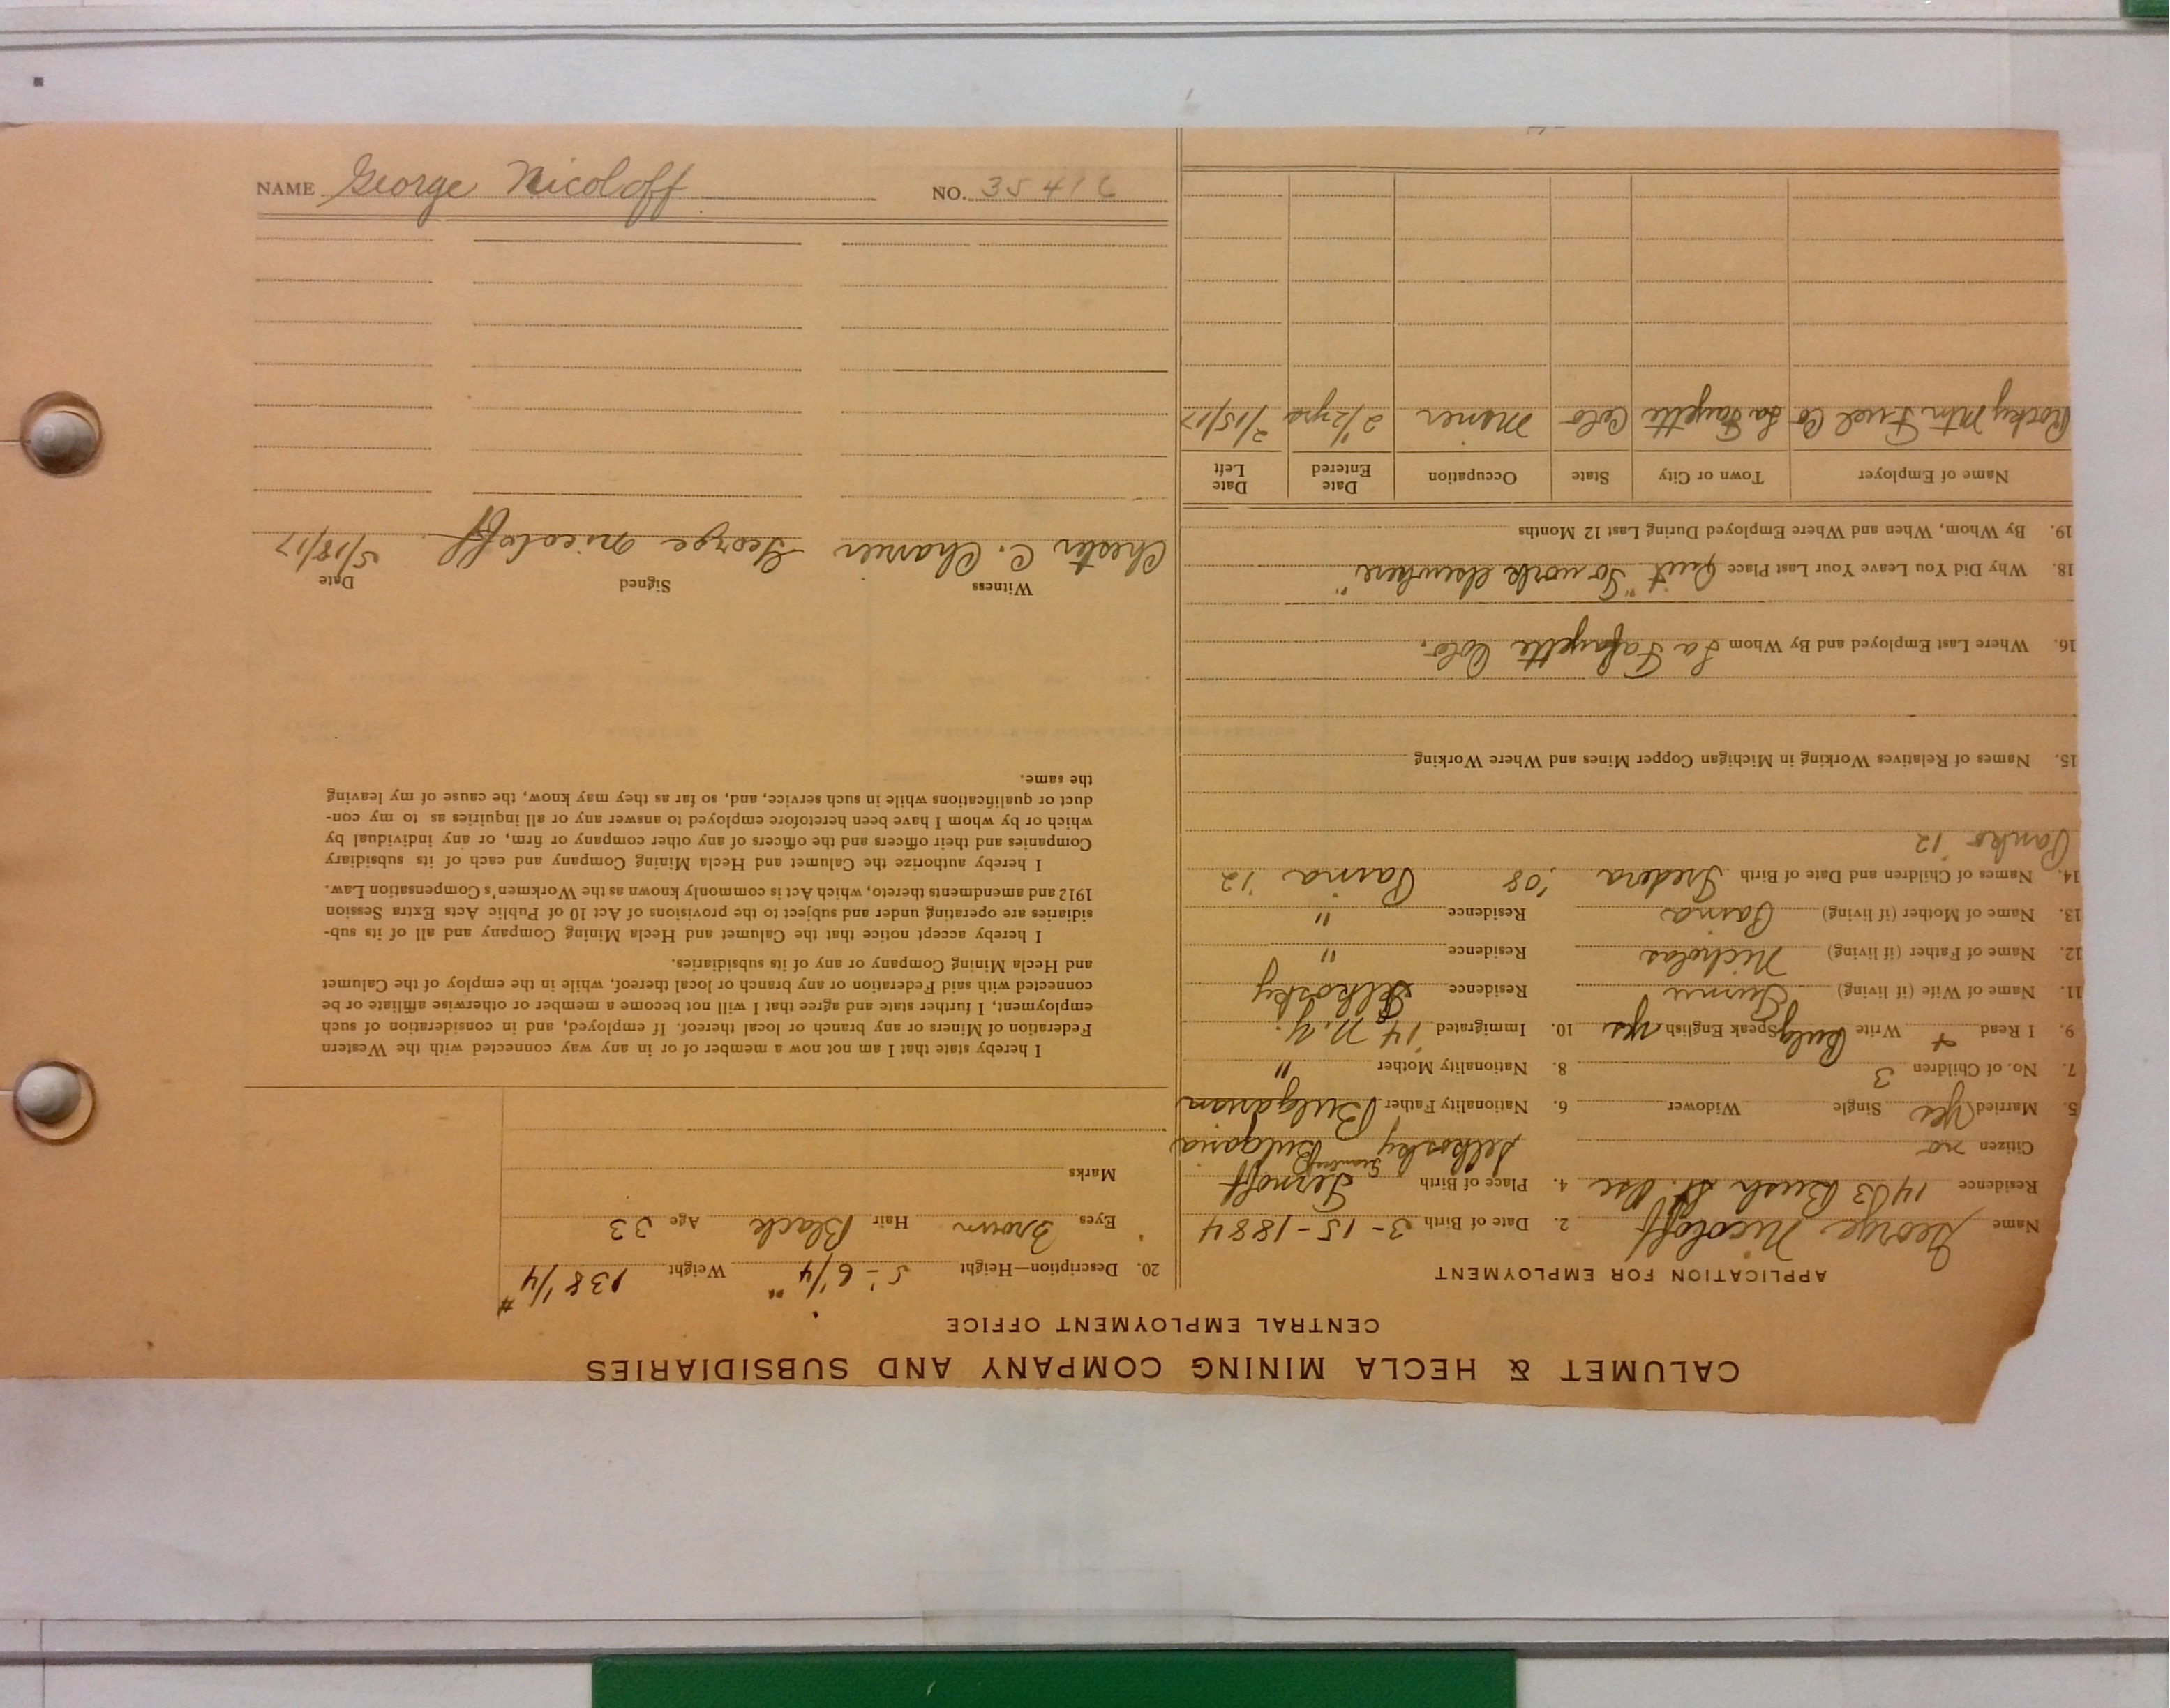 NAME George Nicoloff NO. 35416
CALUMET & HECLA MINING COMPANY AND SUBSIDIARIES
CENTRAL EMPLOYMENT OFFICE
APPLICATION FOR EMPLOYMENT
Name George Nicoloff 2. Date of Birth 3-15-1884
Residence 1403 Bush St. 4. Place of Birth
Citizen no Selkosky Bulgaria
5. Married Yes Single Widower 6. Nationality Father Bulgarian
7. No. of Children 3 8. Nationality Mother "
9. I Read + Write Bulg Speak English yes 10. Immigrated '14 N.Y.
11. Name of Wife (if living) Residence Selkosky
12. Name of Father (if living) Nicholas Residence "
13. Name of Mother (if living) Parna Residence "
14. Names of Children and Date of Birth '08 Parna '12
Panko '12
15. Names of Relatives Working in Michigan Copper Mines and Where Working
16. Where Last Employed and By Whom La Fafayette Colo.
18. Why Did You Leave Your Last Place Quit "To work elsewhere"
19. By Whom, When and Where Employed During Last 12 Months
Name of Employer Town or City State Occupation Date Entered Date Left
Rocky Mtn Fuel Co La Fayette Colo Miner 2 1/2 yrs 2/15/17
20. Description—Height 5'-6 1/4" Weight 138 1/4 #
Eyes Brown Hair Black Age 33
Marks
I hereby state that I am not now a member of or in any way connected with the Western
Federation of Miners or any branch or local thereof. If employed, and in consideration of such
employment, I further state and agree that I will not become a member or otherwise affiliate or be
connected with said Federation or any branch or local thereof, while in the employ of the Calumet
and Hecla Mining Company or any of its subsidiaries.
I hereby accept notice that the Calumet and Hecla Mining Company and all of its sub-
sidiaries are operating under and subject to the provisions of Act 10 of Public Acts Extra Session
1912 and amendments thereto, which Act is commonly known as the Workmen's Compensation Law.
I hereby authorize the Calumet and Hecla Mining Company and each of its subsidiary
Companies and their officers and the officers of any other company or firm, or any individual by
which or by whom I have been heretofore employed to answer any or all inquiries as to my con-
duct or qualifications while in such service, and, so far as they may know, the cause of my leaving
the same.
Witness Signed Date
Chester C. George Nicoloff 5/18/17